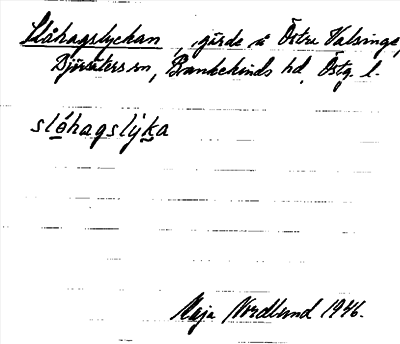 Slåhagslyckan, gärde å Östra Valsinge,
Björsäters sn, Bankekinds hd, Östg. l.
slåhagslyka
Maja Nordlund 1946.